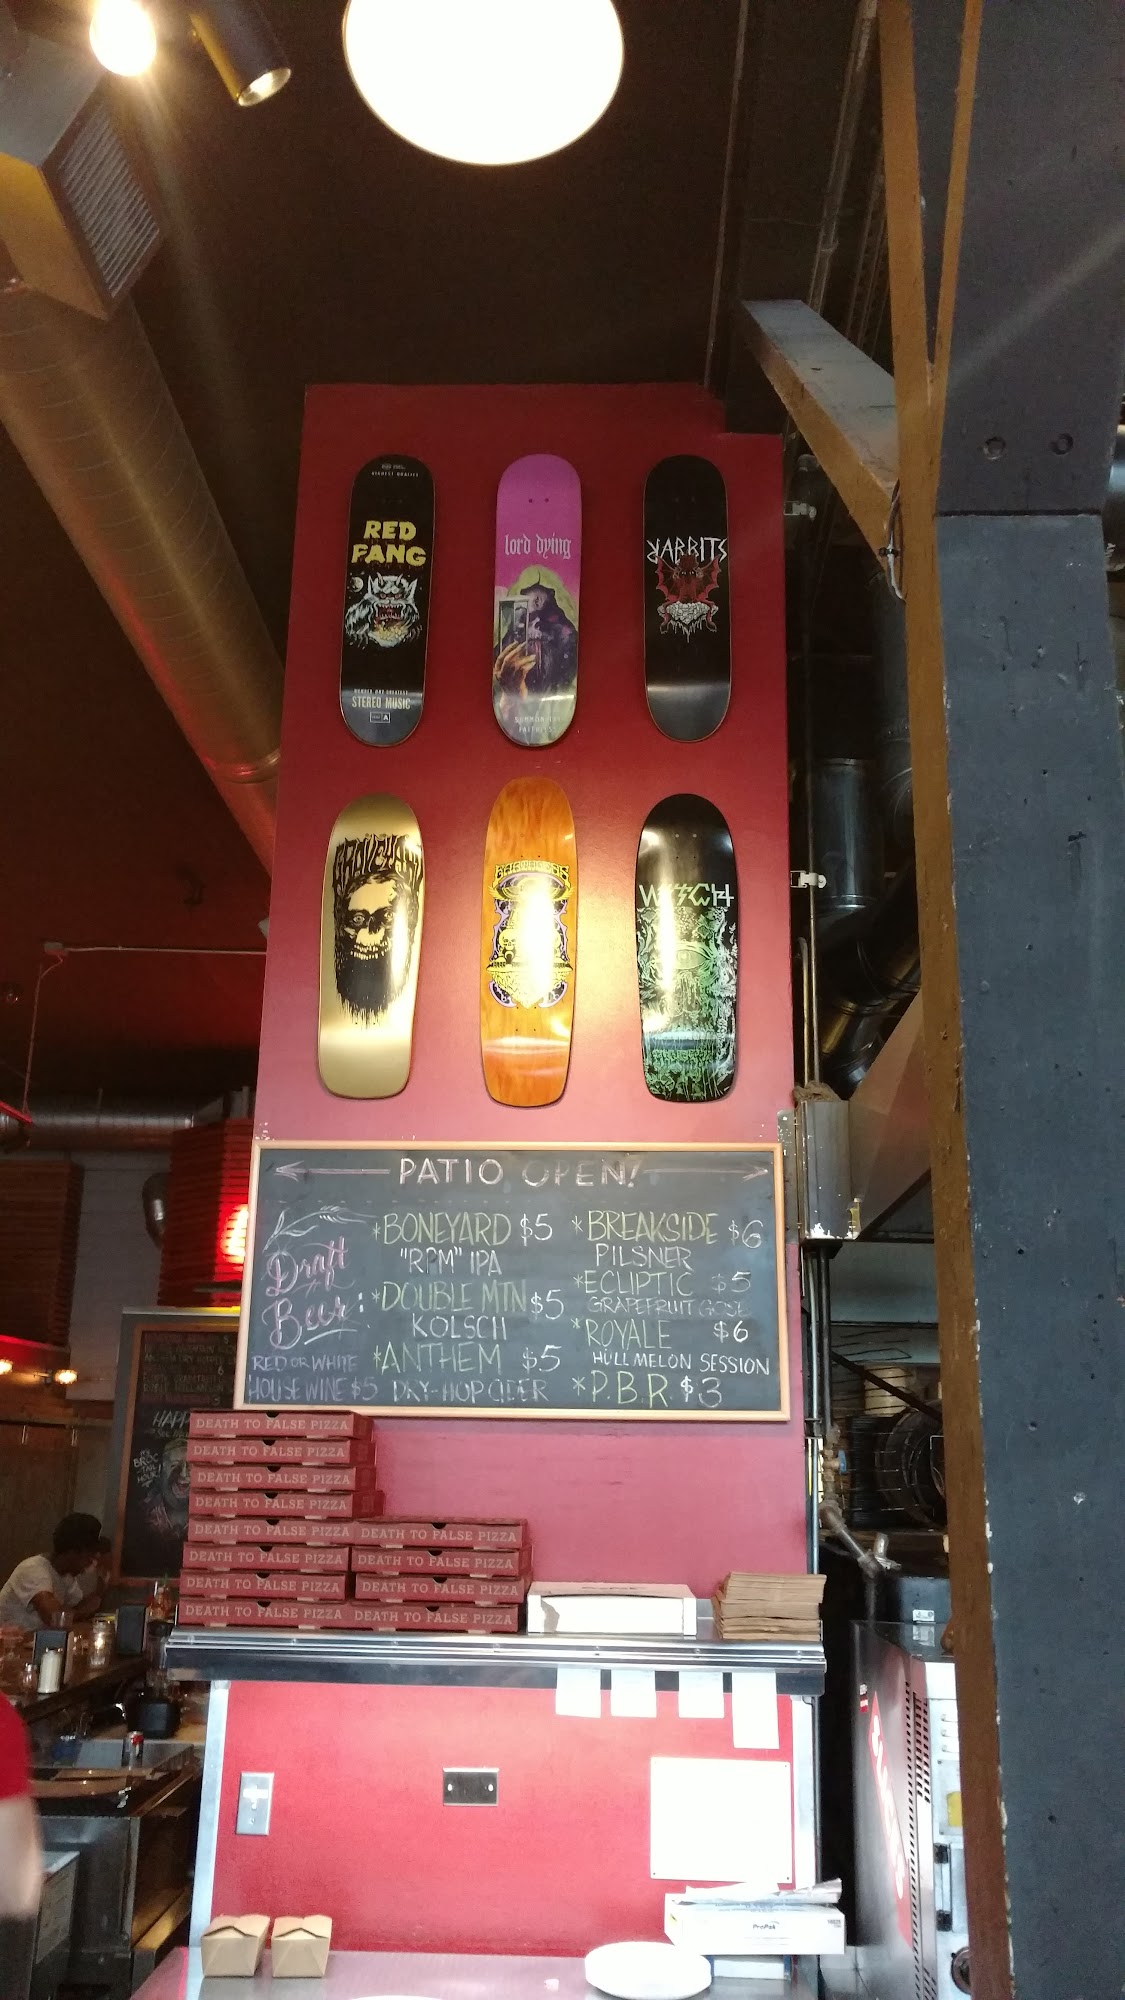 RED
FANG
STEREO MUSIC
lord dying
RABBITS
GRAVEYARD
WITCH
PATIO OPEN!
Draft
Beer:
RED OR WHITE
HOUSE WINE $5
*BONEYARD $5
"RPM" IPA
*DOUBLE MTN $5
KOLSCH
*ANTHEM $5
DRY-HOP CIDER
*BREAKSIDE $6
PILSNER
*ECLIPTIC $5
GRAPEFRUIT GOSE
*ROYALE $6
HÜLL MELON SESSION
*P.B.R. $3
DEATH TO FALSE PIZZA
DEATH TO FALSE PIZZA
DEATH TO FALSE PIZZA
DEATH TO FALSE PIZZA
DEATH TO FALSE PIZZA DEATH TO FALSE PIZZA
DEATH TO FALSE PIZZA DEATH TO FALSE PIZZA
DEATH TO FALSE PIZZA DEATH TO FALSE PIZZA
DEATH TO FALSE PIZZA DEATH TO FALSE PIZZA
ProPak